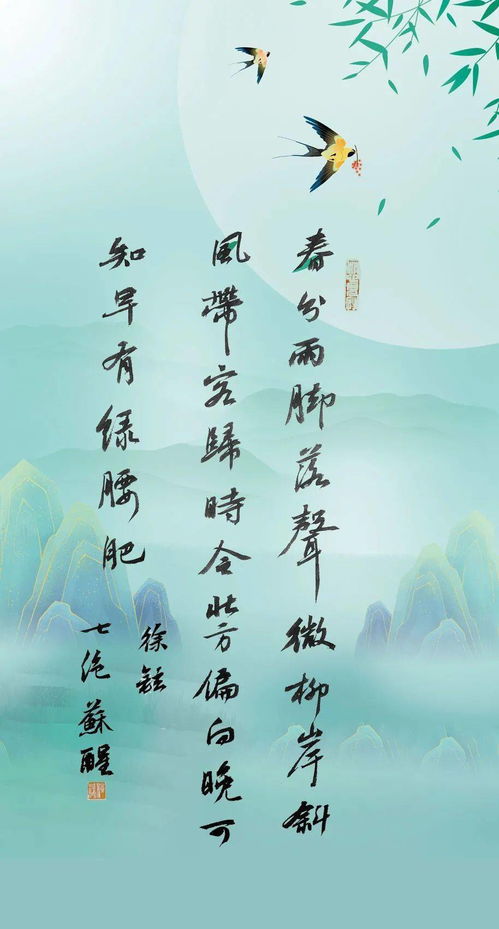 春分雨脚落聲微柳岸斜
風帶客歸時令北方偏向晚可
知早有绿腰肥
徐鉉
七绝蘇醒